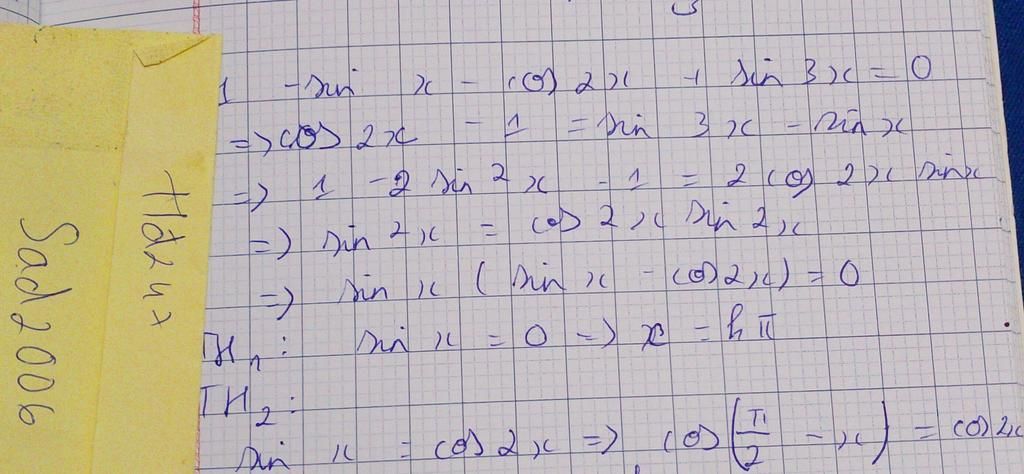 1 - sin x - cos 2x + sin 3x = 0
=> cos 2x - 1 = sin 3x - sin x
=> 1 - 2 sin²x - 1 = 2 cos 2x sin x
=> sin²x = cos 2x sin 2x
=> sin x (sin x - cos 2x) = 0
TH₁: sin x = 0 => x = kπ
TH₂:
sin x = cos 2x => cos(π/2 - x) = cos 2x
Sad2006